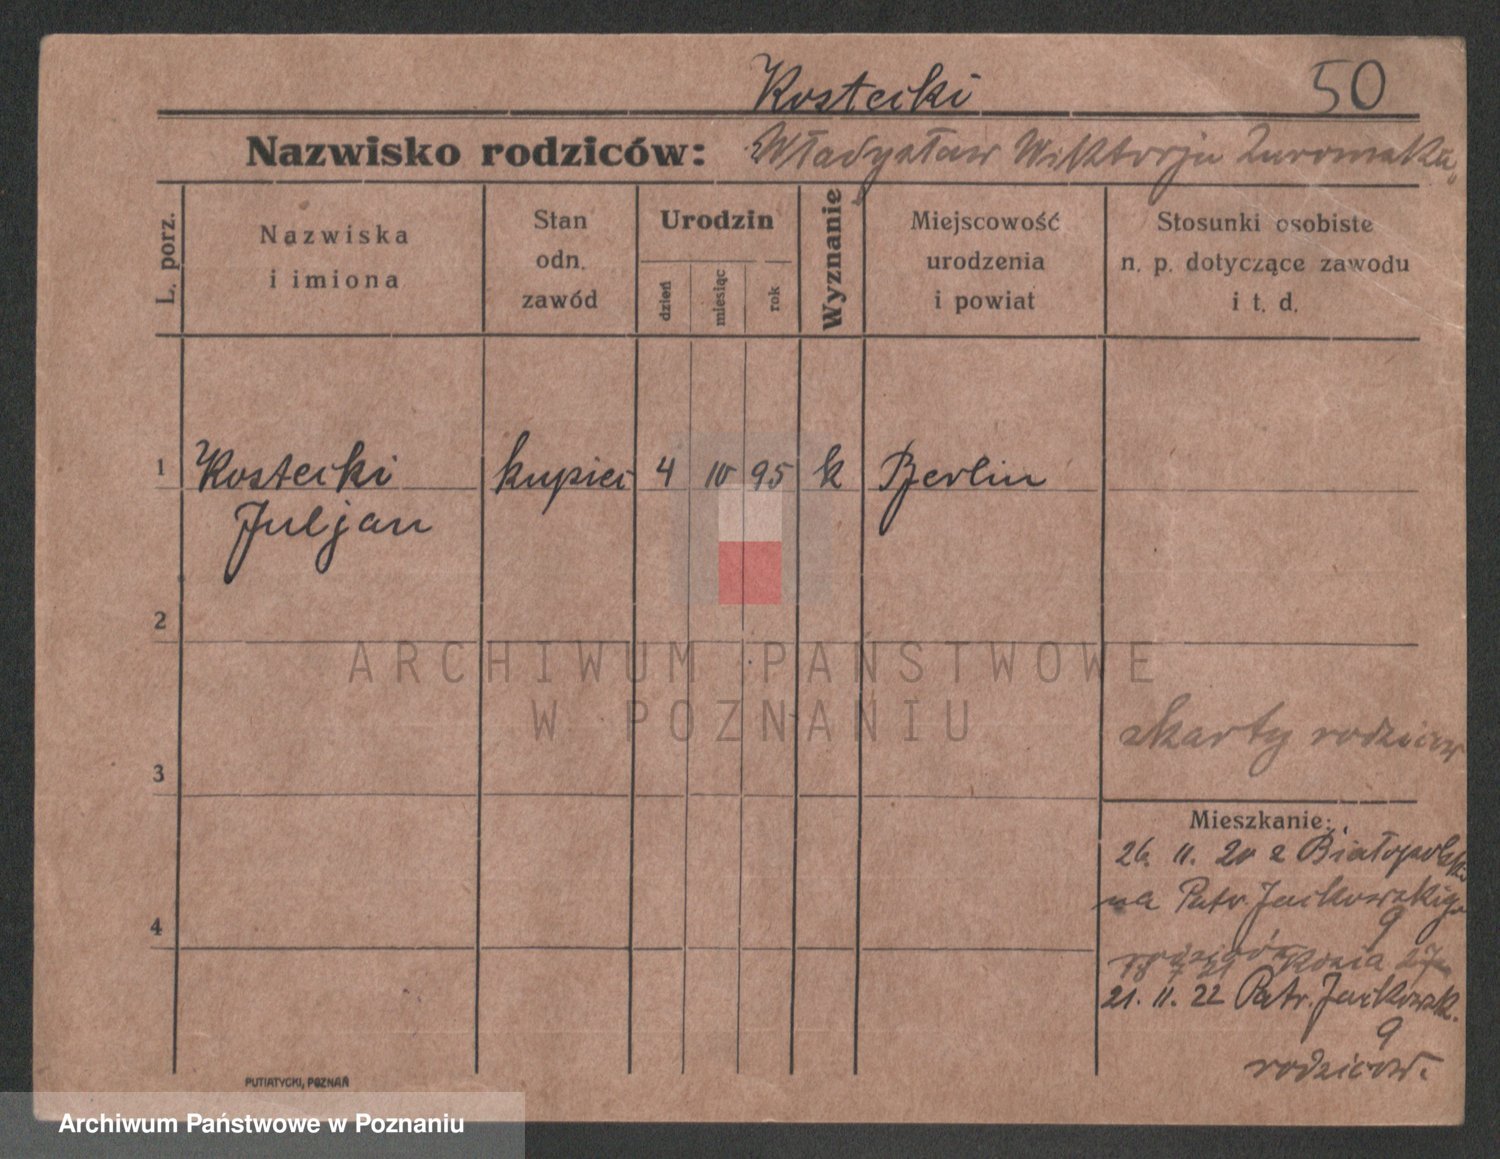 Kostecki 50
Nazwisko rodziców: Władysław Wiktorja Żuromska
L. porz.
Nazwiska
i imiona
Stan
odn.
zawód
Urodzin
dzień
miesiąc
rok
Wyznanie
Miejscowość
urodzenia
i powiat
Stosunki osobiste
n. p. dotyczące zawodu
i t. d.
1 Kostecki kupiec 4 10 95 k Berlin
Juljan
2
ARCHIWUM PAŃSTWOWE
W POZNANIU
z karty rodziców
3
Mieszkanie:
26. 11. 20 z Białopolsk.
na Patr. Jackowskiego
9
4
rodziców Kozia 27
21. 11. 22 Patr. Jackowsk.
9
rodziców.
PUTIATYCKI, POZNAŃ
Archiwum Państwowe w Poznaniu